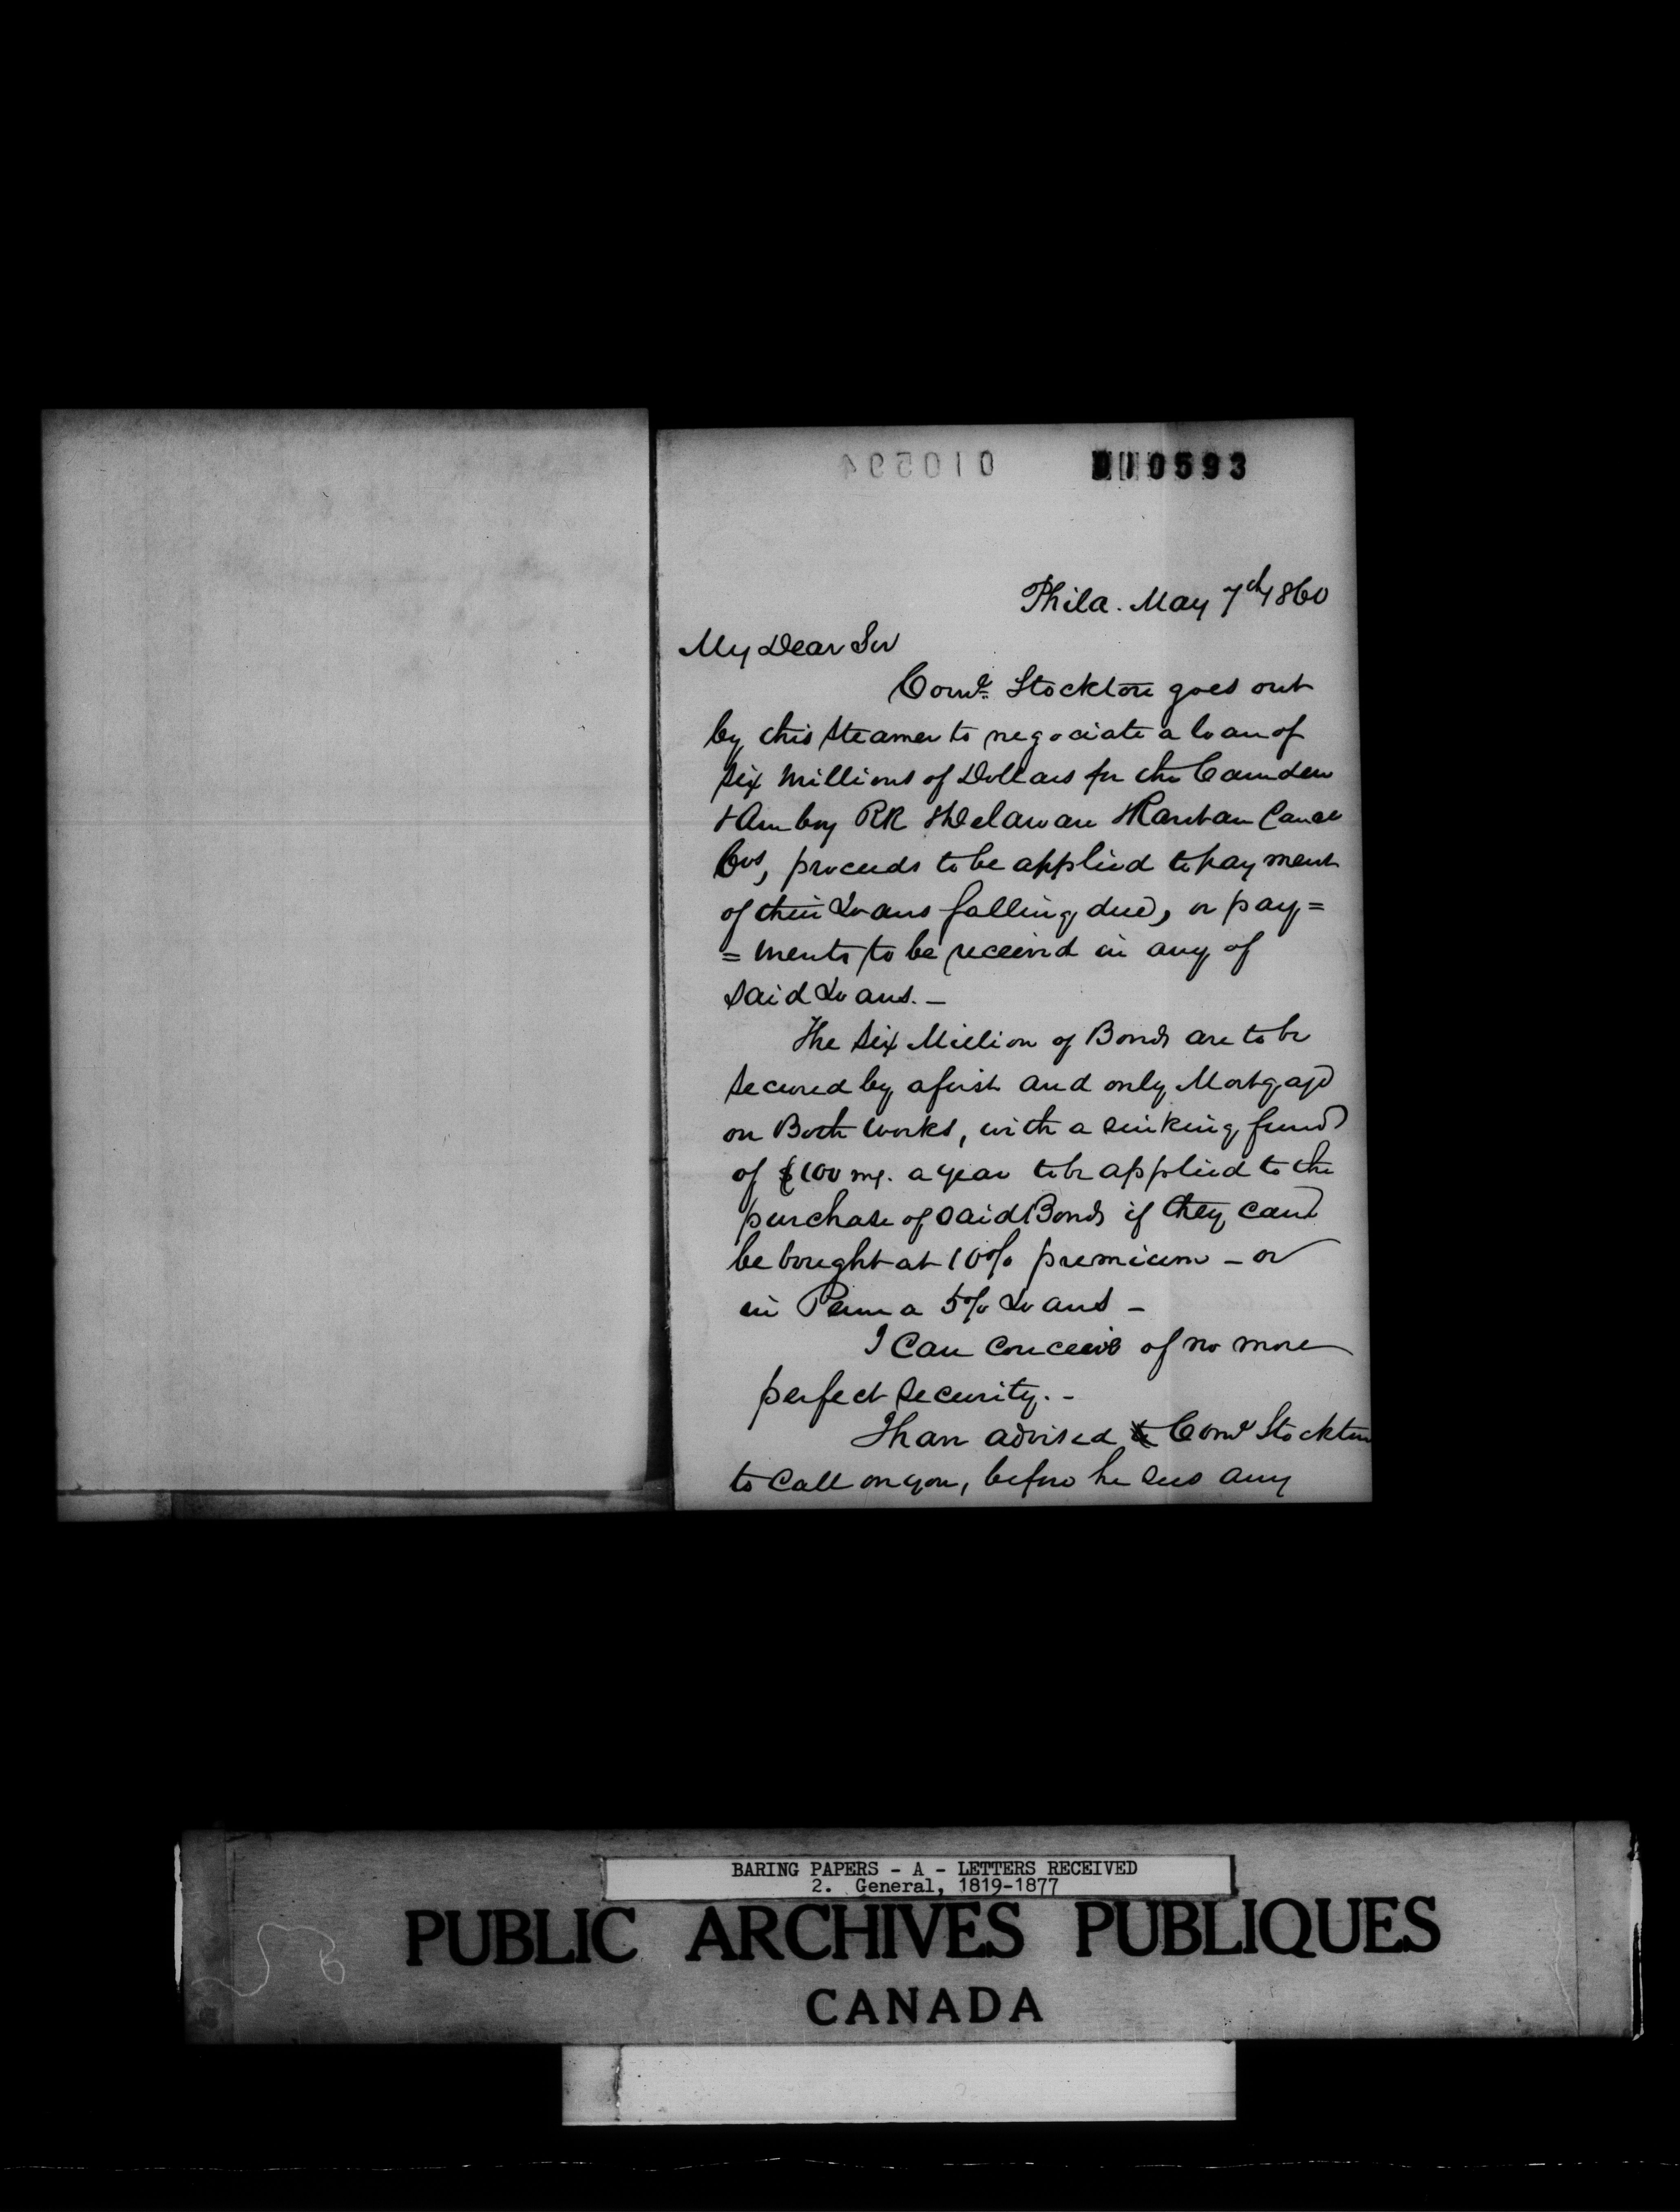 010593
Phila. May 7th 1860
My Dear Sir
Comd. Stockton goes out
by this steamer to negociate a loan of
Six Millions of Dollars for the Camden
& Amboy RR & Delaware & Raritan Canal
Cos, proceeds to be applied to payment
of their Loans falling due, or pay=
=ments to be received in any of
said Loans. –
The Six Million of Bonds are to be
secured by a first and only Mortgage
on Both works, with a sinking fund
of $100 m. a year to be applied to the
purchase of said Bonds if they can
be bought at 10% premium – or
in Penna 5% Loans –
I can conceive of no more
perfect security. –
I have advised Comd Stockton
to call on you, before he sees any
BARING PAPERS - A - LETTERS RECEIVED
2. General, 1819-1877
PUBLIC ARCHIVES PUBLIQUES
CANADA